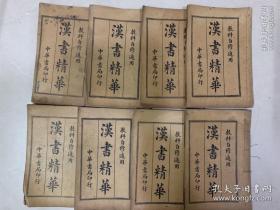 教科自修適用
漢書精華
中華書局印行
教科自修適用
漢書精華
中華書局印行
教科自修適用
漢書精華
中華書局印行
教科自修適用
漢書精華
中華書局印行
教科自修適用
漢書精華
中華書局印行
教科自修適用
漢書精華
中華書局印行
教科自修適用
漢書精華
中華書局印行
教科自修適用
漢書精華
中華書局印行
孔夫子旧书网